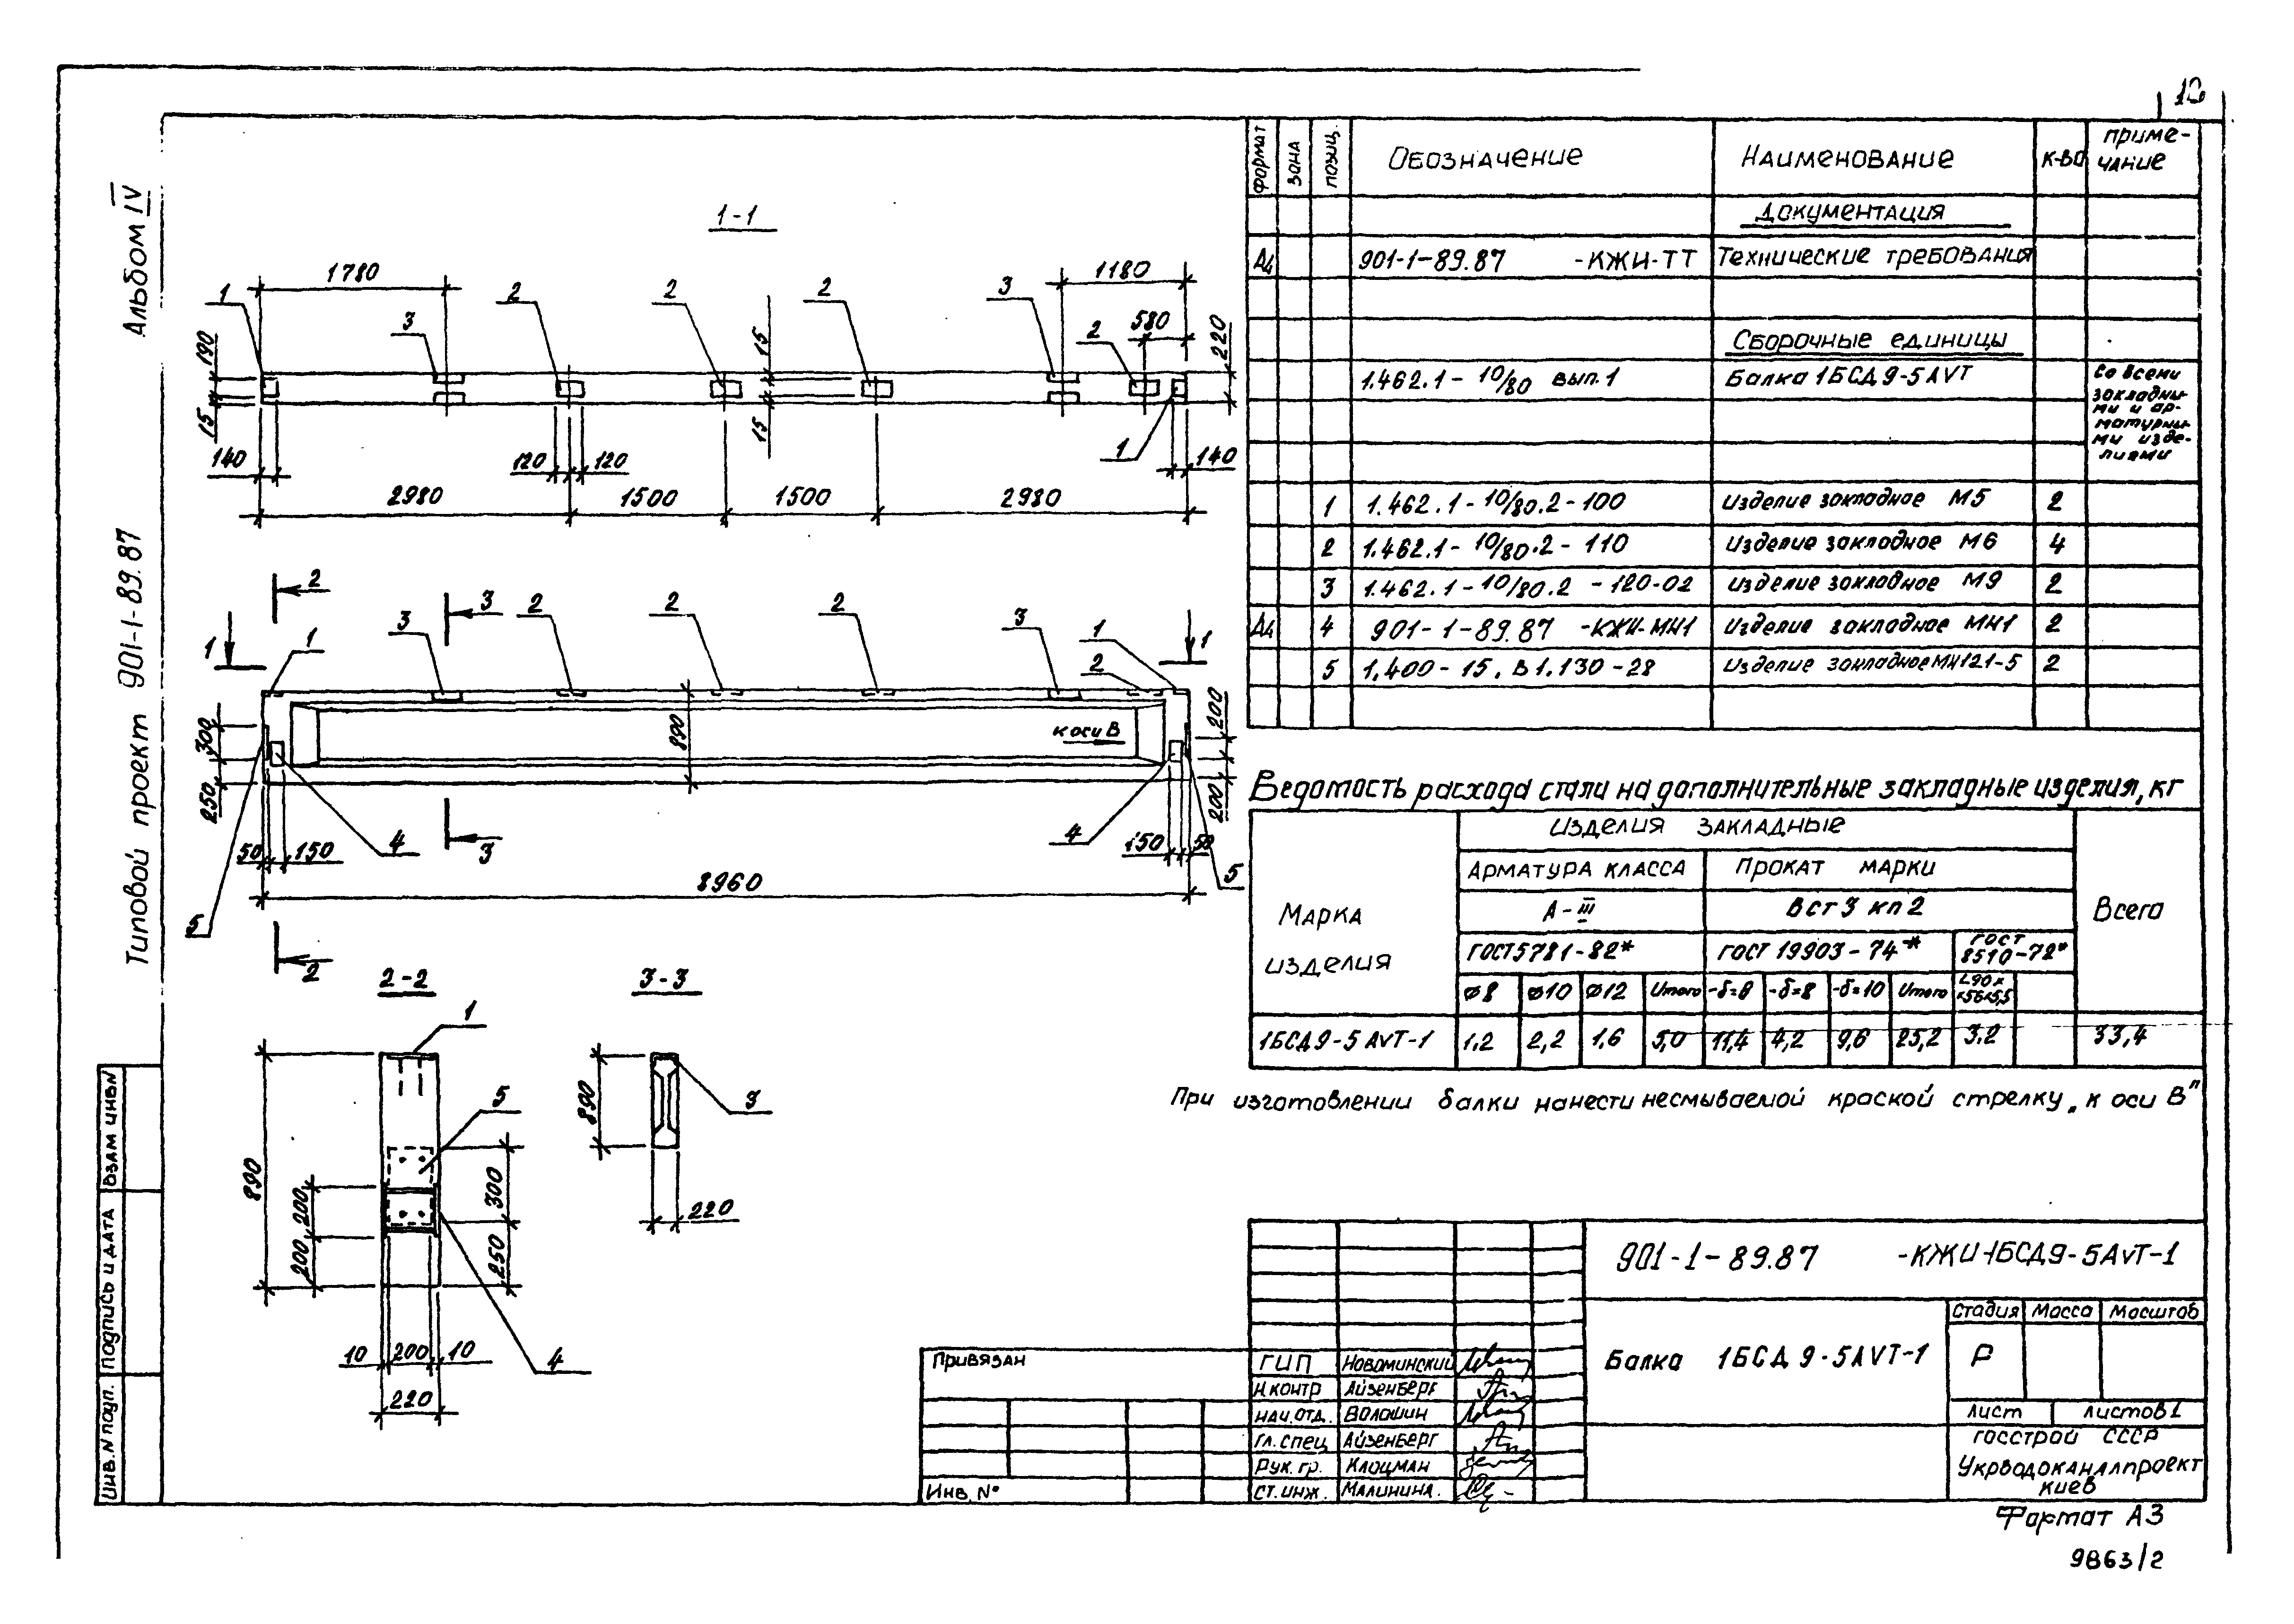 12
Альбом IV
Типовой проект 901-1-89.87
1-1
1780
1180
580
1
3
2
2
2
3
2
1
190
15
15
15
220
140
120
120
140
2980
1500
1500
2980
2
3
1
1
1
3
2
2
2
3
1
2
300
250
890
к оси В
200
200
50
150
4
4
150
50
5
5
8960
2
3
2-2
3-3
1
5
4
3
890
200
200
300
250
10
200
10
220
890
220
Формат
Зона
Позиц.
Обозначение
Наименование
К-во
Приме-
чание
Документация
А4 901-1-89.87 -КЖИ-ТТ Технические требования
Сборочные единицы
1.462.1-10/80 вып.1 Балка 1БСД9-5АVТ
Со всеми
закладны-
ми и ар-
матурны-
ми изде-
лиями
1 1.462.1-10/80.2-100 Изделие закладное М5 2
2 1.462.1-10/80.2-110 Изделие закладное М6 4
3 1.462.1-10/80.2-120-02 Изделие закладное М9 2
А4 4 901-1-89.87 -КЖИ-МН1 Изделие закладное МН1 2
5 1.400-15.В1.130-28 Изделие закладное МН121-5 2
Ведомость расхода стали на дополнительные закладные изделия, кг
Марка
изделия
Изделия закладные
Всего
Арматура класса
Прокат марки
А-III
Вст3 кп2
ГОСТ 5781-82*
ГОСТ 19903-74*
ГОСТ
8510-72*
ø8 ø10 ø12 Итого -δ=6 -δ=8 -δ=10 Итого
L90х
х56х5,5
1БСД9-5АVТ-1 1,2 2,2 1,6 5,0 11,4 4,2 9,6 25,2 3,2 33,4
При изготовлении балки нанести несмываемой краской стрелку „к оси В"
Взам инв N
Подпись и дата
Инв. N подл.
901-1-89.87 -КЖИ-1БСД9-5АVТ-1
Балка 1БСД9-5АVТ-1
Стадия Масса Масштаб
Р
Лист Листов 1
Госстрой СССР
Укрводоканалпроект
Киев
Привязан
Инв. №
ГИП Новоминский
Н.контр Айзенберг
Нач.отд. Волошин
Гл.спец Айзенберг
Рук.гр. Клоцман
Ст.инж. Малинина.
Формат А3
9863/2